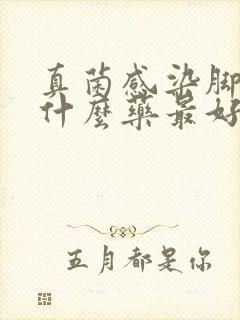 真菌感染脚
什麼药最好
五月都是你